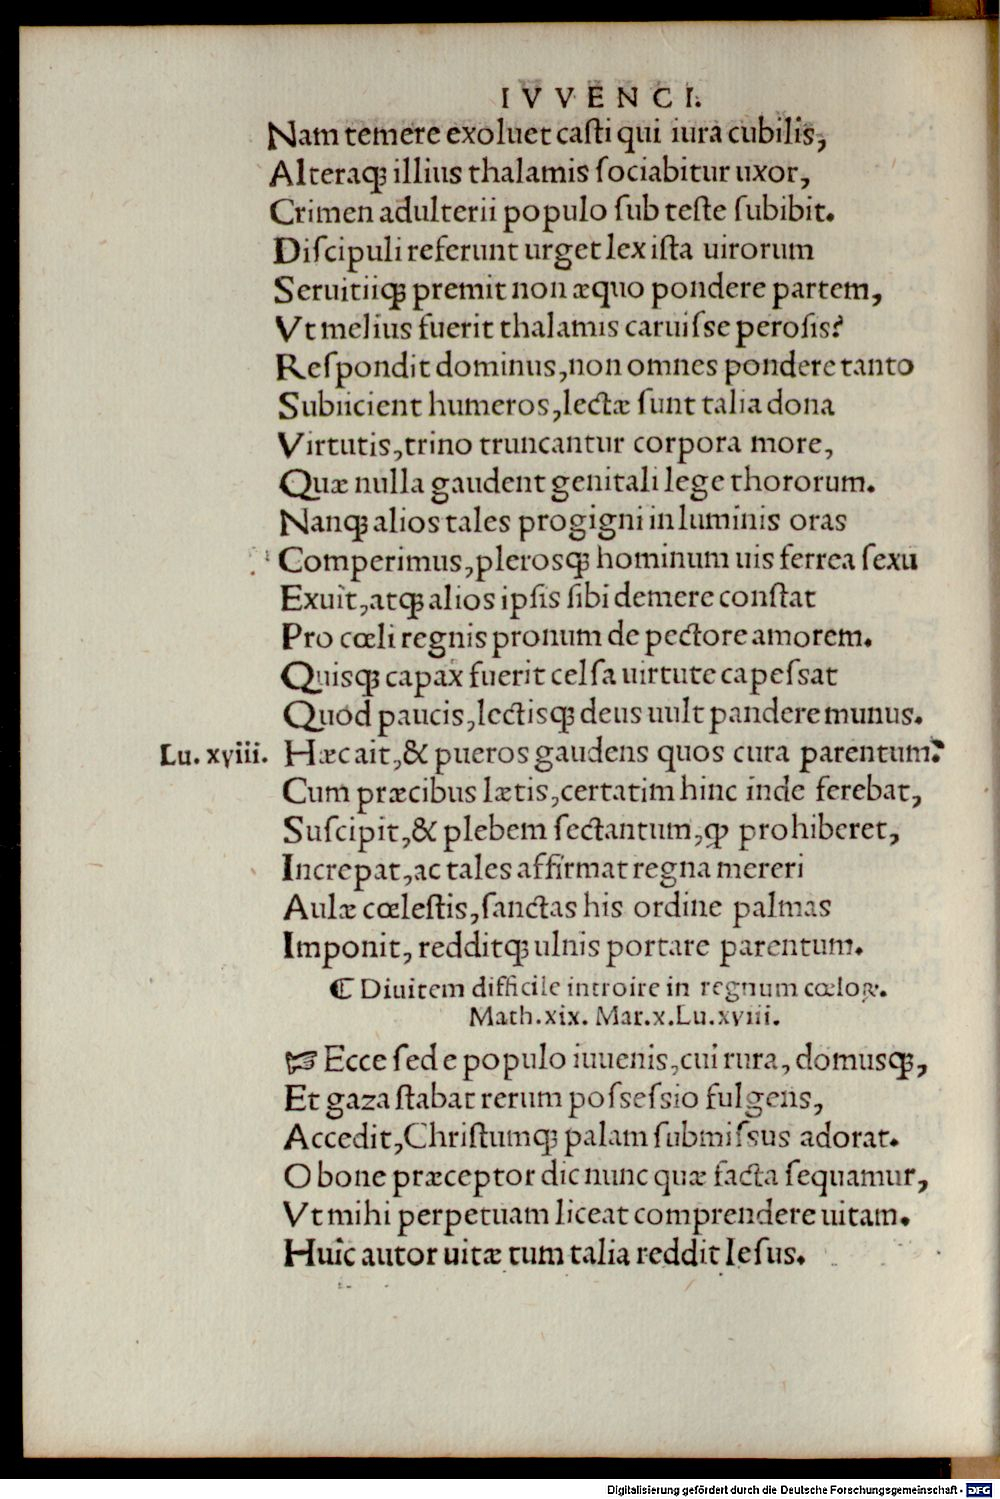 IVVENCI.
Nam temere exoluet casti qui iura cubilis,
Alteraq; illius thalamis sociabitur uxor,
Crimen adulterii populo sub teste subibit.
Discipuli referunt urget lex ista uirorum
Seruitiiq; premit non æquo pondere partem,
Vt melius fuerit thalamis caruisse perosis?
Respondit dominus, non omnes pondere tanto
Subiicient humeros, lectæ sunt talia dona
Virtutis, trino truncantur corpora more,
Quæ nulla gaudent genitali lege thororum.
Nanq; alios tales progigni in luminis oras
Comperimus, plerosq; hominum uis ferrea sexu
Exuit, atq; alios ipsis sibi demere constat
Pro cœli regnis pronum de pectore amorem.
Quisq; capax fuerit celsa uirtute capessat
Quod paucis, lectisq; deus uult pandere munus.
Lu. xviii. Hæc ait, & pueros gaudens quos cura parentum?
Cum præcibus lætis, certatim hinc inde ferebat,
Suscipit, & plebem sectantum, ꝙ prohiberet,
Increpat, ac tales affirmat regna mereri
Aulæ cœlestis, sanctas his ordine palmas
Imponit, redditq; ulnis portare parentum.
⸿ Diuitem difficile introire in regnum cœloꝝ.
Math.xix. Mar.x.Lu.xviii.
☞ Ecce sed e populo iuuenis, cui rura, domusq;,
Et gaza stabat rerum possessio fulgens,
Accedit, Christumq; palam submissus adorat.
O bone præceptor dic nunc quæ facta sequamur,
Vt mihi perpetuam liceat comprendere uitam.
Huic autor uitæ tum talia reddit Iesus.
Digitalisierung gefördert durch die Deutsche Forschungsgemeinschaft - DFG